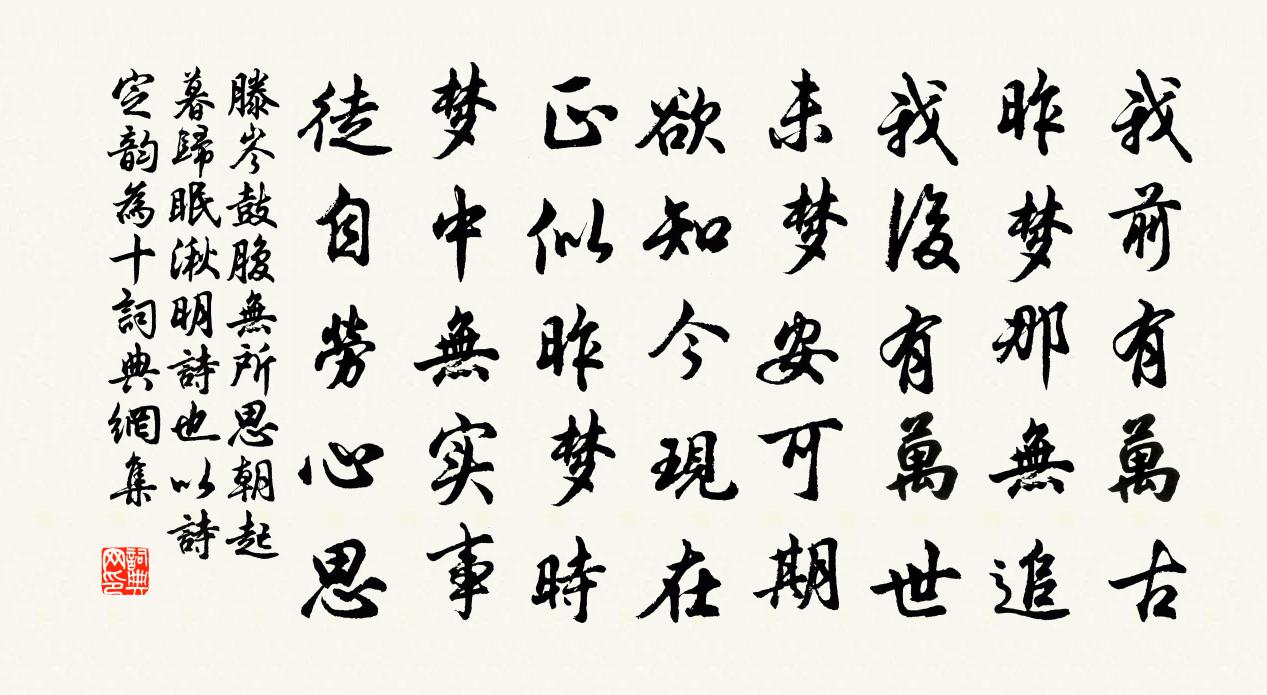 我前有萬古
昨梦那無追
我後有萬世
未梦安可期
欲知今現在
正似昨梦時
梦中無实事
徒自勞心思
滕岑鼓腹無所思朝起
暮歸眠湫明詩也以詩
定韵為十詞典網集
詞典网印